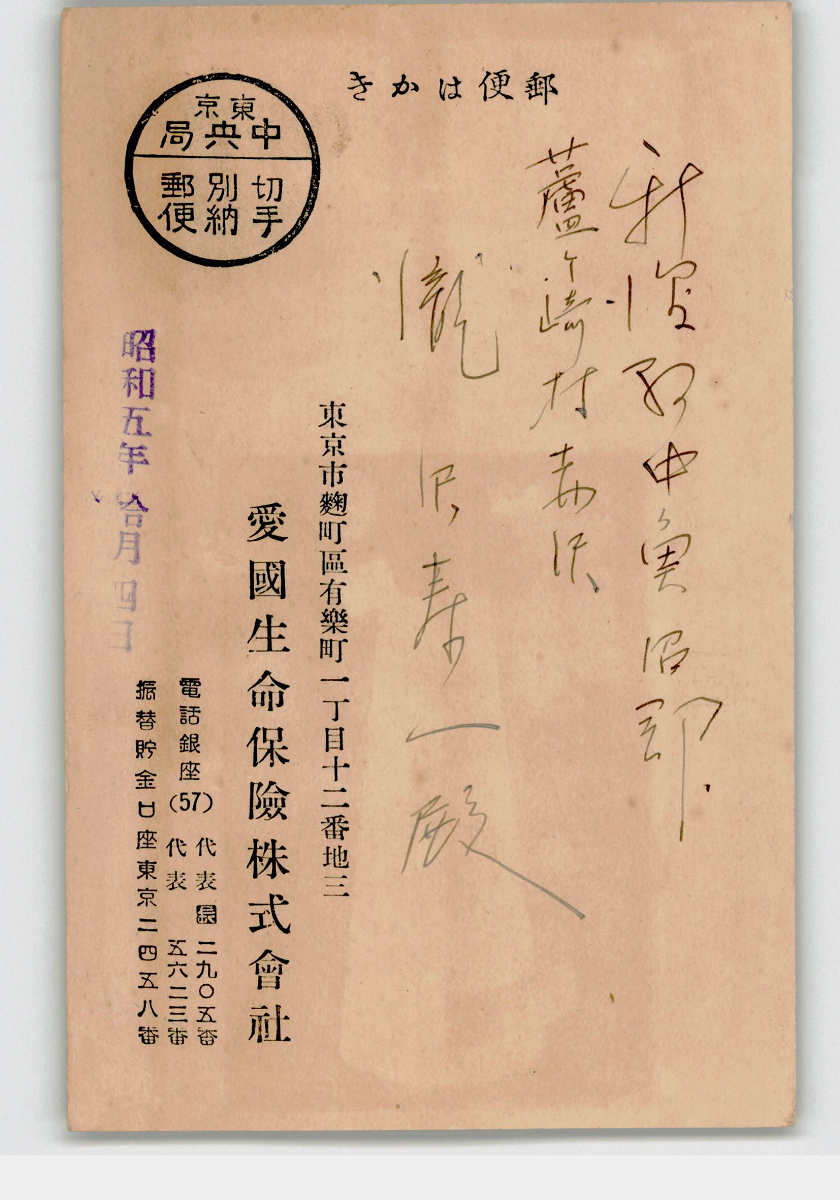 郵便はかき
新潟縣中魚沼郡
蘆ヶ崎村赤沢
瀧沢寿一殿
東京市麴町區有樂町一丁目十二番地三
愛國生命保險株式會社
電話銀座(57)代表長二九〇五番
代表五六二三番
振替貯金口座東京二四五八番
東京
中央局
切手
別納
郵便
昭和五年拾月四日